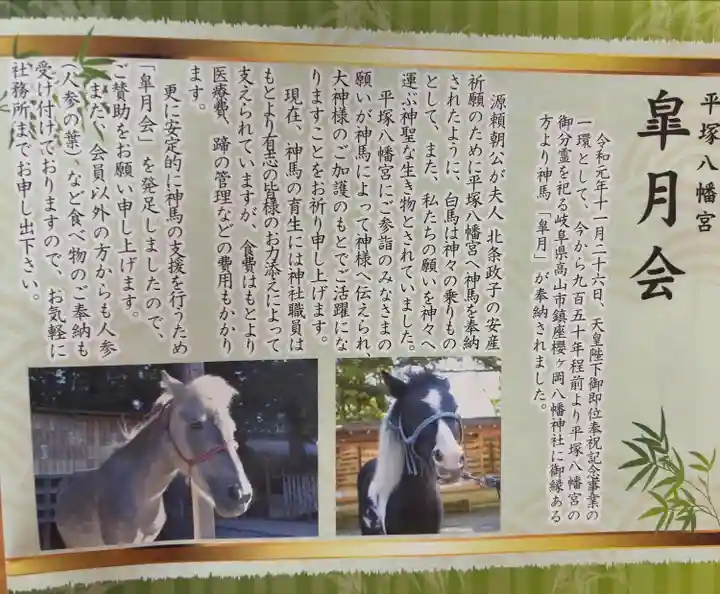 平塚八幡宮
皐月会
令和元年十一月二十六日、天皇陛下御即位奉祝記念事業の
一環として、今から九百五十年程前より平塚八幡宮の
御分霊を祀る岐阜県高山市鎮座櫻ヶ岡八幡神社に御縁ある
方より神馬「皐月」が奉納されました。
源頼朝公が夫人 北条政子の安産
祈願のために平塚八幡宮へ神馬を奉納
されたように、白馬は神々の乗りもの
として、また、私たちの願いを神々へ
運ぶ神聖な生き物とされていました。
平塚八幡宮にご参詣のみなさまの
願いが神馬によって神様へ伝えられ、
大神様のご加護のもとでご活躍にな
りますことをお祈り申し上げます。
現在、神馬の育生には神社職員は
もとより有志の皆様のお力添えによって
支えられていますが、食費はもとより
医療費、蹄の管理などの費用もかかり
ます。
更に安定的に神馬の支援を行うため
「皐月会」を発足しましたので、
ご賛助をお願い申し上げます。
また、会員以外の方からも人参
（人参の葉）、など食べ物のご奉納も
受け付けておりますので、お気軽に
社務所までお申し出下さい。